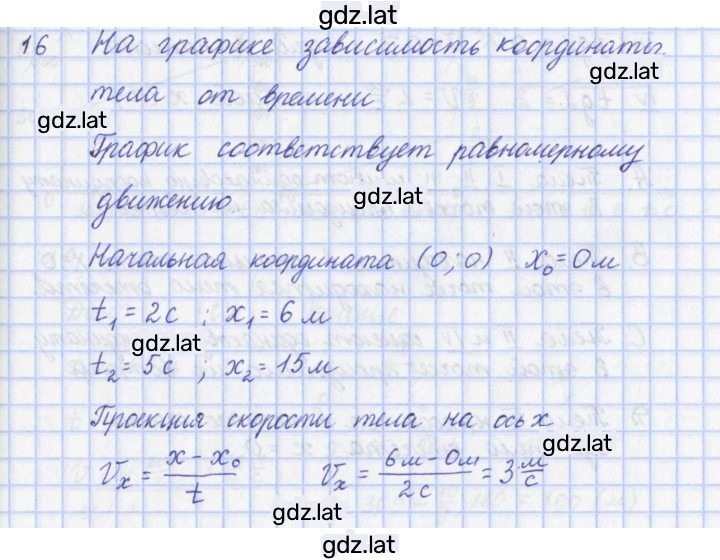 gdz.lat
16 На графике зависимость координаты
gdz.lat
тела от времени
gdz.lat
График соответствует равномерному
gdz.lat
движению.
Начальная координата (0;0) x₀=0м
t₁=2с ; x₁=6м
gdz.lat
t₂=5с ; x₂=15м
Проекция скорости тела на ось x
gdz.lat
Vₓ = (x-x₀)/t Vₓ = (6м-0м)/2с = 3 м/с
gdz.lat
gdz.lat